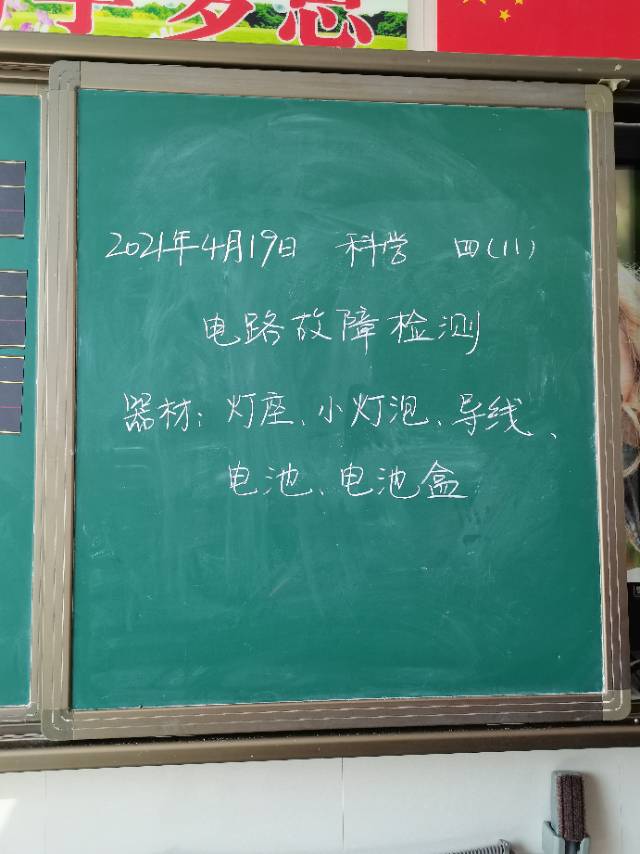 梦想
2021年4月19日 科学 四(11)
电路故障检测
器材：灯座、小灯泡、导线、
电池、电池盒